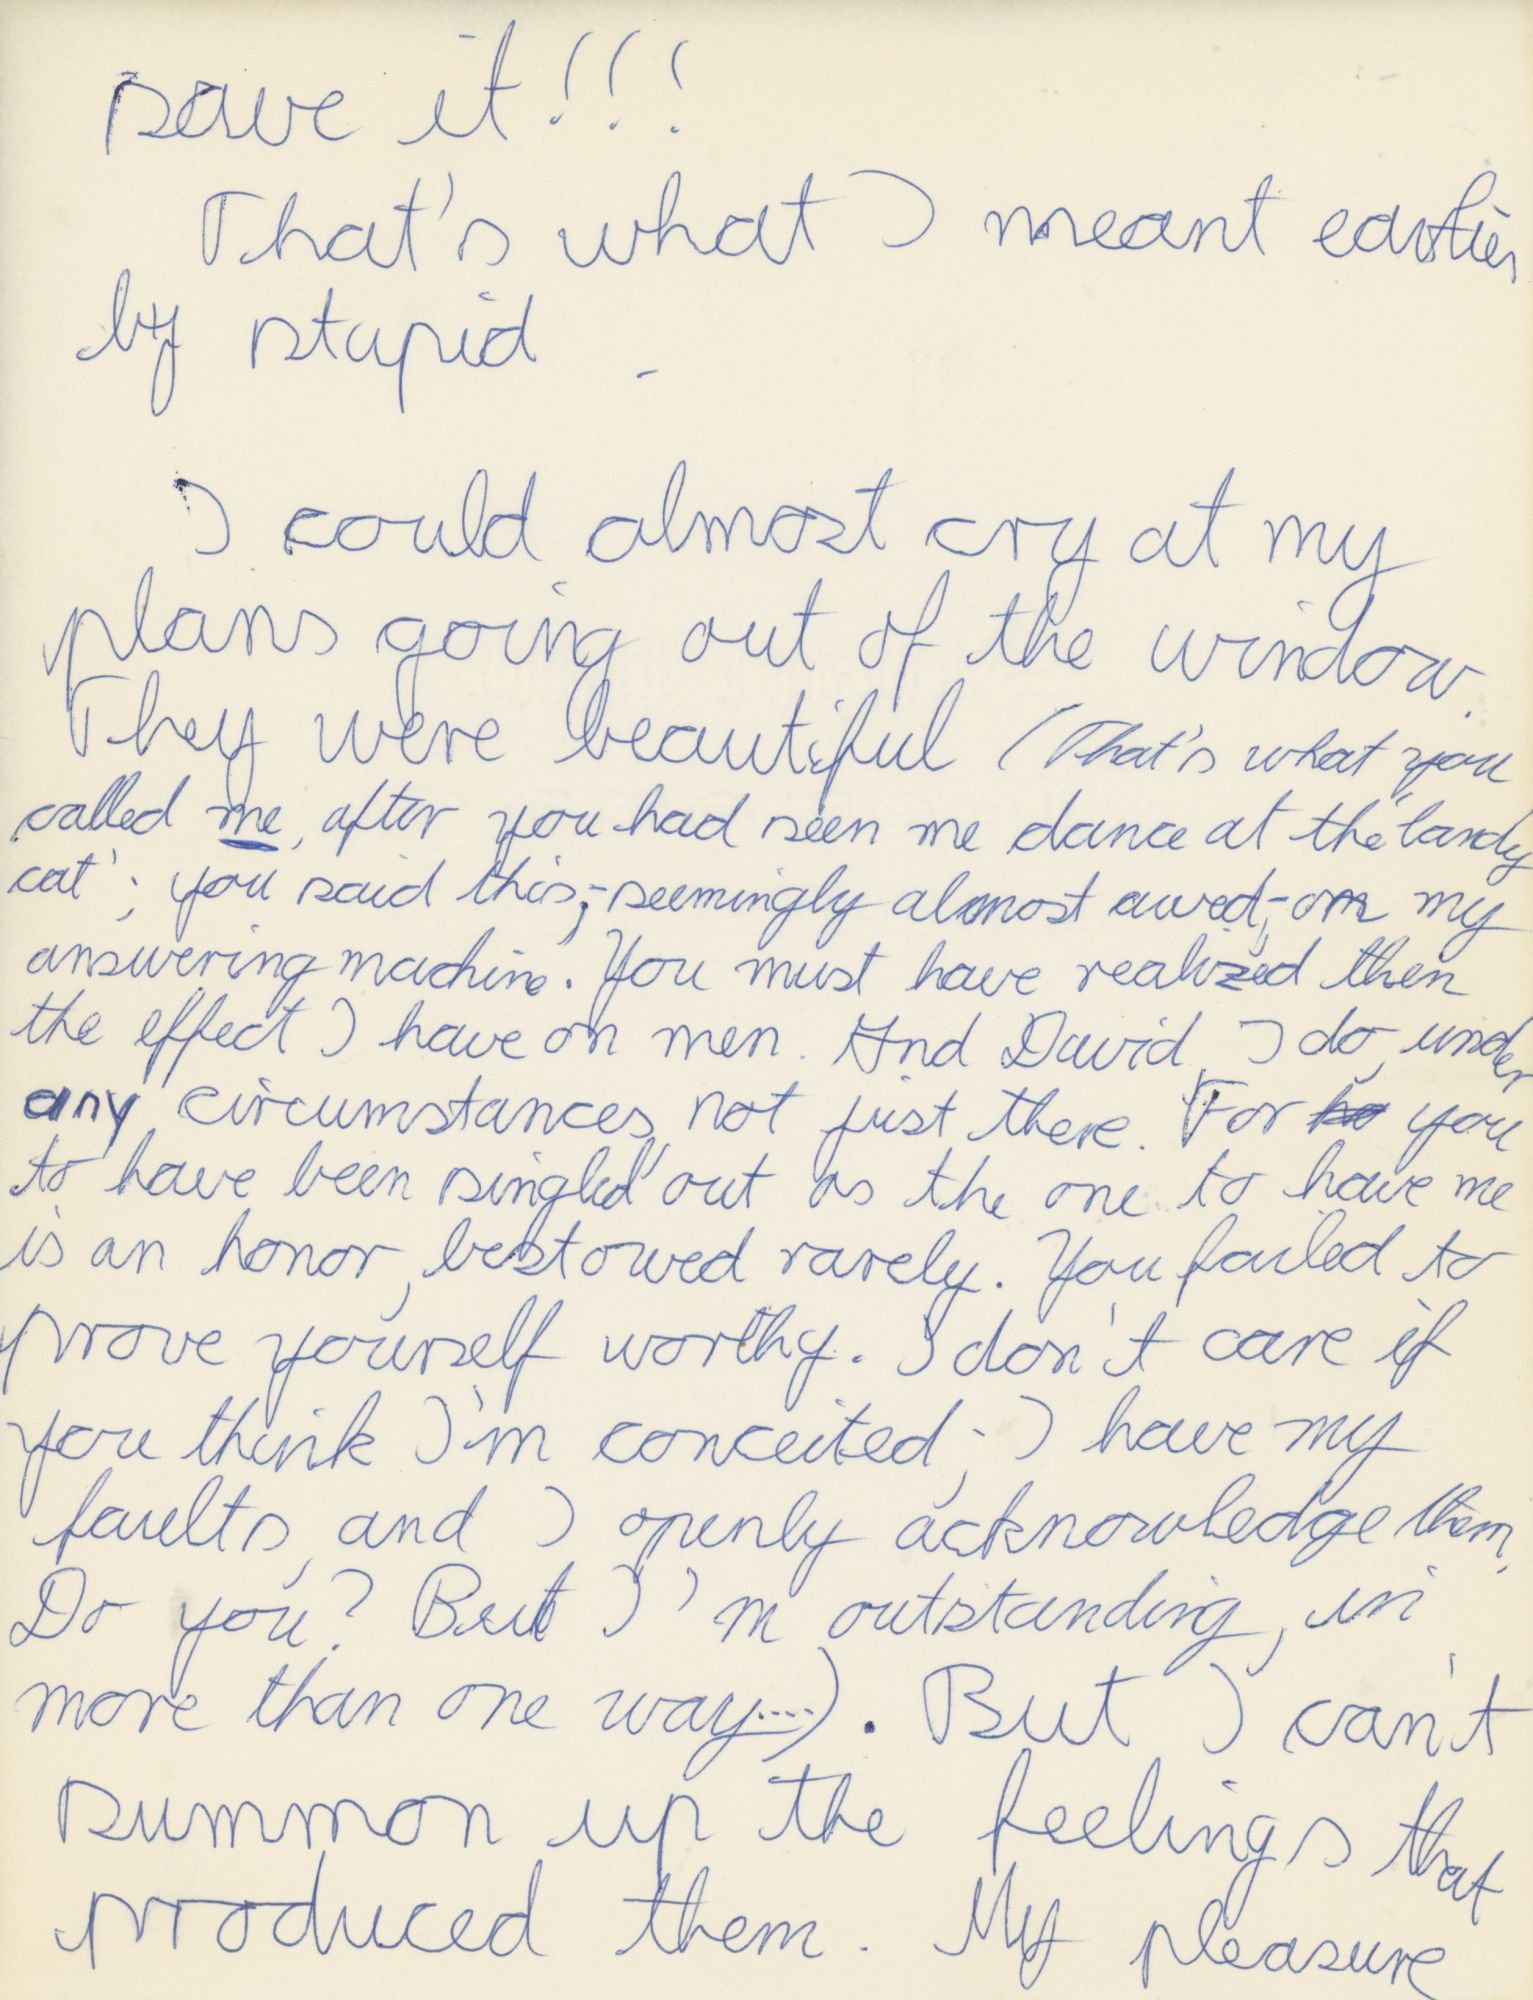 save it!!!
That's what I meant earlier
by stupid.
I could almost cry at my
plans going out of the window.
They were beautiful (That's what you
called me, after you had seen me dance at the 'landy
cat'; you said this,-seemingly almost awed,-on my
answering machine. You must have realized then
the effect I have on men. And David, I do, under
any circumstances, not just there. For you
to have been 'singled' out as the one to have me
is an honor, bestowed rarely. You failed to
prove yourself worthy. I don't care if
you think I'm conceited; I have my
faults, and I openly acknowledge them.
Do you? But I'm outstanding, in
more than one way....). But I can't
summon up the feelings that
produced them. My pleasure